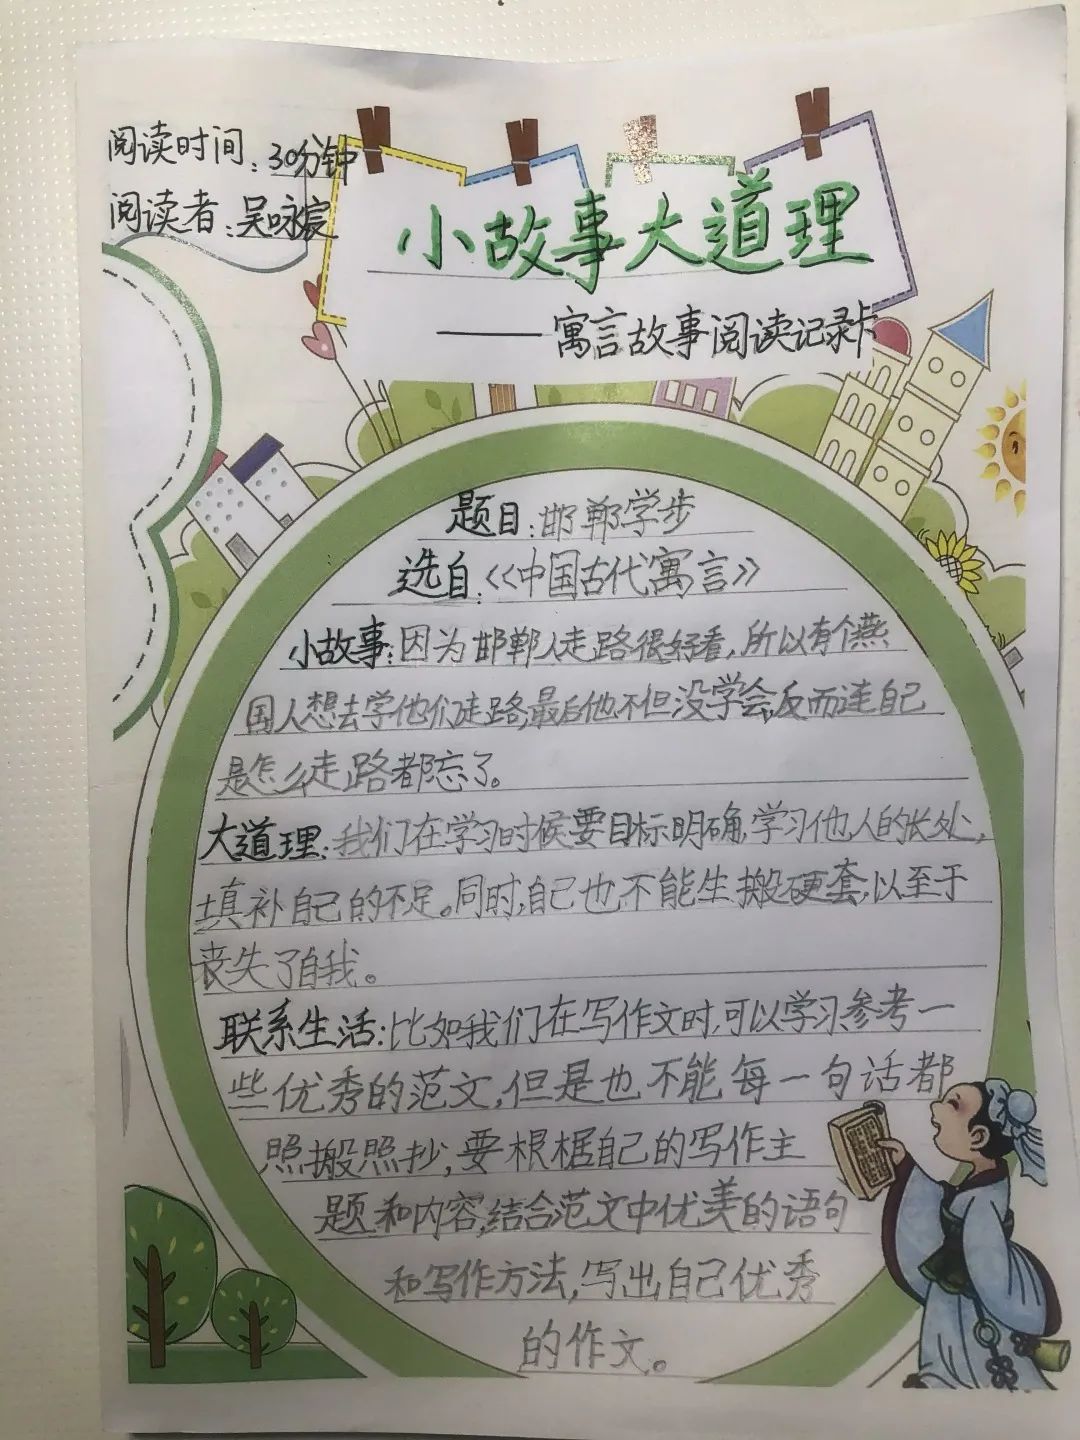 阅读时间：30分钟
阅读者：吴咏宸
小故事大道理
——寓言故事阅读记录卡
题目：邯郸学步
选自：《中国古代寓言》
小故事：因为邯郸人走路很好看，所以有个燕
国人想去学他们走路，最后他不但没学会，反而连自己
是怎么走路都忘了。
大道理：我们在学习时候要目标明确，学习他人的长处，
填补自己的不足。同时，自己也不能生搬硬套，以至于
丧失了自我。
联系生活：比如我们在写作文时，可以学习、参考一
些优秀的范文，但是也不能每一句话都
照搬照抄，要根据自己的写作主
题和内容，结合范文中优美的语句
和写作方法，写出自己优秀
的作文。